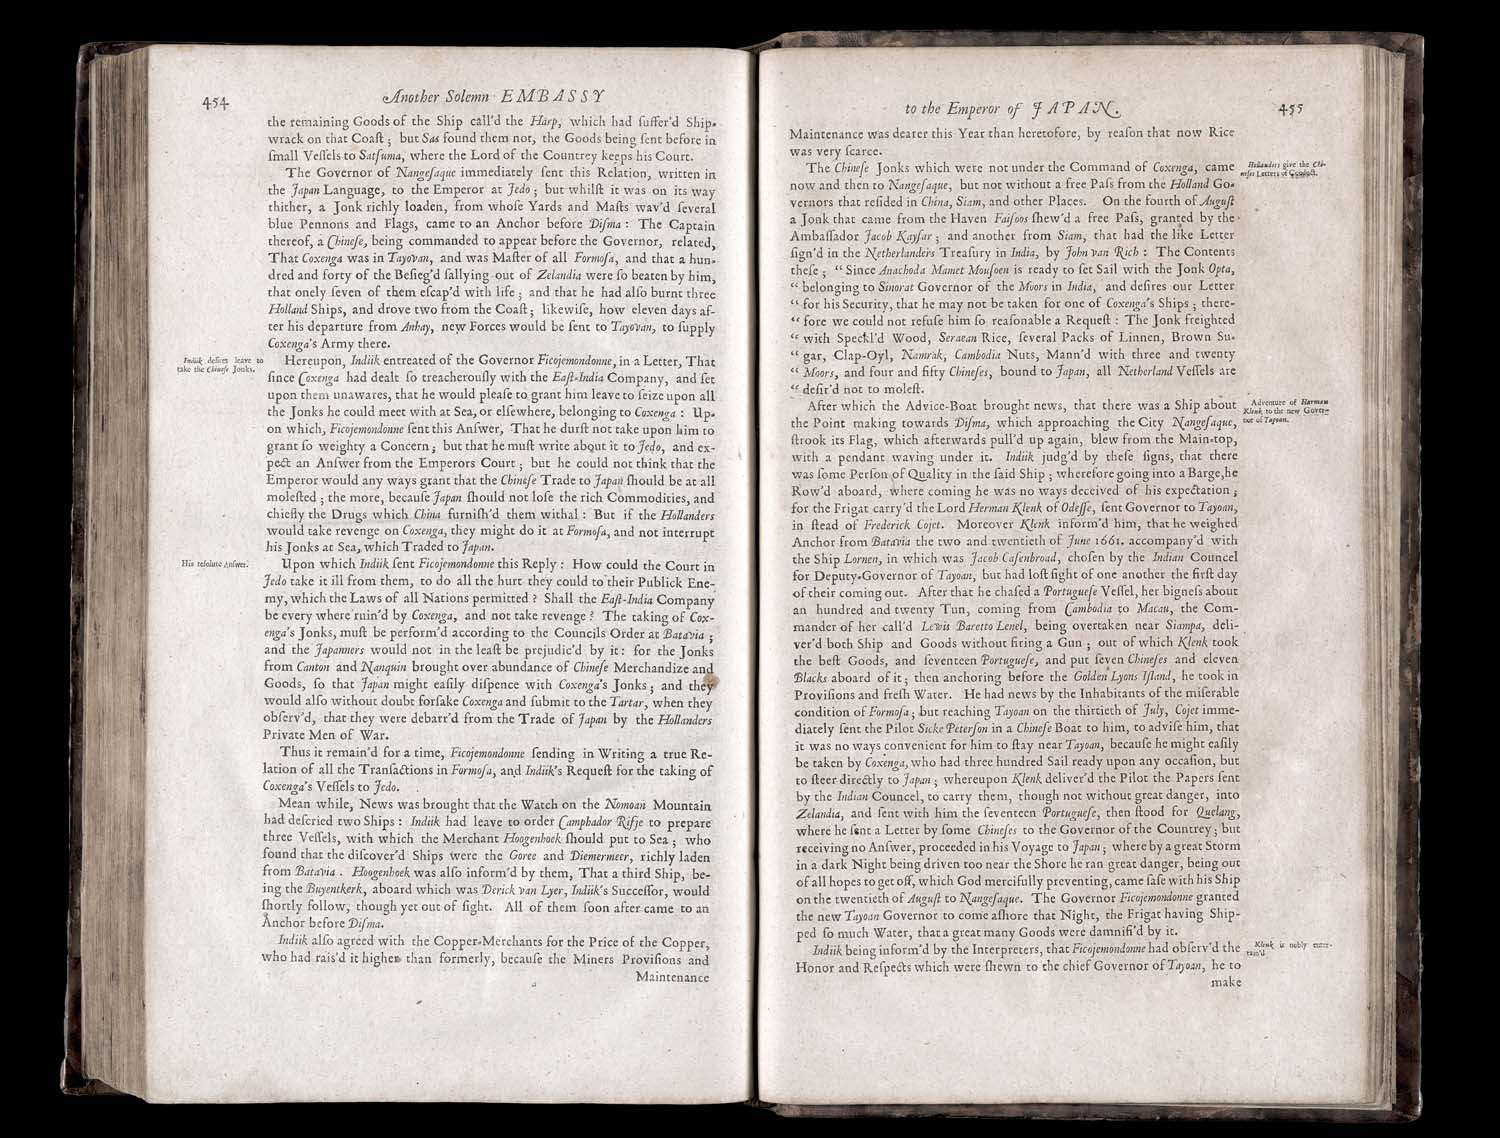 454
Another Solemn EMBASSY
the remaining Goods of the Ship call'd the Harp, which had ſuffer'd Ship-
wrack on that Coaſt ; but Sas found them not, the Goods being ſent before in
ſmall Veſſels to Satſuma, where the Lord of the Countrey keeps his Court.
The Governor of Nangeſaque immediately ſent this Relation, written in
the Japan Language, to the Emperor at Jedo ; but whilſt it was on its way
thither, a Jonk richly loaden, from whoſe Yards and Maſts wav'd ſeveral
blue Pennons and Flags, came to an Anchor before Diſma : The Captain
thereof, a Chineſe, being commanded to appear before the Governor, related,
That Coxenga was in Tayovan, and was Maſter of all Formoſa, and that a hun-
dred and forty of the Beſieg'd ſallying out of Zelandia were ſo beaten by him,
that onely ſeven of them eſcap'd with life ; and that he had alſo burnt three
Holland Ships, and drove two from the Coaſt ; likewiſe, how eleven days af-
ter his departure from Anhay, new Forces would be ſent to Tayovan, to ſupply
Coxenga's Army there.
Indiik deſires leave to
take the Chineſe Jonks.
Hereupon, Indiik entreated of the Governor Ficojemondonne, in a Letter, That
ſince Coxenga had dealt ſo treacherouſly with the Eaſt-India Company, and ſet
upon them unawares, that he would pleaſe to grant him leave to ſeize upon all
the Jonks he could meet with at Sea, or elſewhere, belonging to Coxenga : Up-
on which, Ficojemondonne ſent this Anſwer, That he durſt not take upon him to
grant ſo weighty a Concern ; but that he muſt write about it to Jedo, and ex-
pect an Anſwer from the Emperors Court ; but he could not think that the
Emperor would any ways grant that the Chineſe Trade to Japan ſhould be at all
moleſted ; the more, becauſe Japan ſhould not loſe the rich Commodities, and
chiefly the Drugs which China furniſh'd them withal : But if the Hollanders
would take revenge on Coxenga, they might do it at Formoſa, and not interrupt
his Jonks at Sea, which Traded to Japan.
His reſolute Anſwer.
Upon which Indiik ſent Ficojemondonne this Reply : How could the Court in
Jedo take it ill from them, to do all the hurt they could to their Publick Ene-
my, which the Laws of all Nations permitted ? Shall the Eaſt-India Company
be every where ruin'd by Coxenga, and not take revenge ? The taking of Cox-
enga's Jonks, muſt be perform'd according to the Councils Order at Batavia ;
and the Japanners would not in the leaſt be prejudic'd by it : for the Jonks
from Canton and Nanquin brought over abundance of Chineſe Merchandize and
Goods, ſo that Japan might eaſily diſpence with Coxenga's Jonks ; and they
would alſo without doubt forſake Coxenga and ſubmit to the Tartar, when they
obſerv'd, that they were debarr'd from the Trade of Japan by the Hollanders
Private Men of War.
Thus it remain'd for a time, Ficojemondonne ſending in Writing a true Re-
lation of all the Tranſactions in Formoſa, and Indiik's Requeſt for the taking of
Coxenga's Veſſels to Jedo.
Mean while, News was brought that the Watch on the Nomoan Mountain
had deſcried two Ships : Indiik had leave to order Camphador Rifje to prepare
three Veſſels, with which the Merchant Hoogenhoek ſhould put to Sea ; who
found that the diſcover'd Ships were the Goree and Diemermeer, richly laden
from Batavia . Hoogenhoek was alſo inform'd by them, That a third Ship, be-
ing the Buyentkerk, aboard which was Derick van Lyer, Indiik's Succeſſor, would
ſhortly follow, though yet out of ſight. All of them ſoon after came to an
Anchor before Diſma.
Indiik alſo agreed with the Copper-Merchants for the Price of the Copper,
who had rais'd it higher than formerly, becauſe the Miners Proviſions and
Maintenance
to the Emperor of JAPAN.
455
Maintenance was dearer this Year than heretofore, by reaſon that now Rice
was very ſcarce.
The Chineſe Jonks which were not under the Command of Coxenga, came
Hollanders give the Chi-
neſes Letters of Conduct.
now and then to Nangeſaque, but not without a free Paſs from the Holland Go-
vernors that reſided in China, Siam, and other Places. On the fourth of Auguſt
a Jonk that came from the Haven Faiſoos ſhew'd a free Paſs, granted by the
Ambaſſador Jacob Kayſar ; and another from Siam, that had the like Letter
ſign'd in the Netherlanders Treaſury in India, by John van Rich : The Contents
theſe ; “ Since Anachoda Mamet Mouſoen is ready to ſet Sail with the Jonk Opta,
“ belonging to Sinorat Governor of the Moors in India, and deſires our Letter
“ for his Security, that he may not be taken for one of Coxenga's Ships ; there-
“ fore we could not refuſe him ſo reaſonable a Requeſt : The Jonk freighted
“ with Speckl'd Wood, Seraean Rice, ſeveral Packs of Linnen, Brown Su-
“ gar, Clap-Oyl, Namrak, Cambodia Nuts, Mann'd with three and twenty
“ Moors, and four and fifty Chineſes, bound to Japan, all Netherland Veſſels are
“ deſir'd not to moleſt.
After which the Advice-Boat brought news, that there was a Ship about
Adventure of Harman
Klenk to the new Gover-
nor of Tayoan.
the Point making towards Diſma, which approaching the City Nangeſaque,
ſtrook its Flag, which afterwards pull'd up again, blew from the Main-top,
with a pendant waving under it. Indiik judg'd by theſe ſigns, that there
was ſome Perſon of Quality in the ſaid Ship ; wherefore going into a Barge, he
Row'd aboard, where coming he was no ways deceived of his expectation ;
for the Frigat carry'd the Lord Herman Klenk of Odeſſe, ſent Governor to Tayoan,
in ſtead of Frederick Cojet. Moreover Klenk inform'd him, that he weighed
Anchor from Batavia the two and twentieth of June 1661. accompany'd with
the Ship Lornen, in which was Jacob Caſenbroad, choſen by the Indian Councel
for Deputy-Governor of Tayoan, but had loſt ſight of one another the firſt day
of their coming out. After that he chaſed a Portugueſe Veſſel, her bigneſs about
an hundred and twenty Tun, coming from Cambodia to Macau, the Com-
mander of her call'd Lewis Baretto Lenel, being overtaken near Siampa, deli-
ver'd both Ship and Goods without firing a Gun ; out of which Klenk took
the beſt Goods, and ſeventeen Portugueſe, and put ſeven Chineſes and eleven
Blacks aboard of it ; then anchoring before the Golden Lyons Iſland, he took in
Proviſions and freſh Water. He had news by the Inhabitants of the miſerable
condition of Formoſa ; but reaching Tayoan on the thirtieth of July, Cojet imme-
diately ſent the Pilot Sicke Peterſon in a Chineſe Boat to him, to adviſe him, that
it was no ways convenient for him to ſtay near Tayoan, becauſe he might eaſily
be taken by Coxenga, who had three hundred Sail ready upon any occaſion, but
to ſteer directly to Japan ; whereupon Klenk deliver'd the Pilot the Papers ſent
by the Indian Councel, to carry them, though not without great danger, into
Zelandia, and ſent with him the ſeventeen Portugueſe, then ſtood for Quelang,
where he ſent a Letter by ſome Chineſes to the Governor of the Countrey ; but
receiving no Anſwer, proceeded in his Voyage to Japan ; where by a great Storm
in a dark Night being driven too near the Shore he ran great danger, being out
of all hopes to get off, which God mercifully preventing, came ſafe with his Ship
on the twentieth of Auguſt to Nangeſaque. The Governor Ficojemondonne granted
the new Tayoan Governor to come aſhore that Night, the Frigat having Ship-
ped ſo much Water, that a great many Goods were damnifi'd by it.
Indiik being inform'd by the Interpreters, that Ficojemondonne had obſerv'd the
Klenk is nobly enter-
tain'd.
Honor and Reſpects which were ſhewn to the chief Governor of Tayoan, he to
make